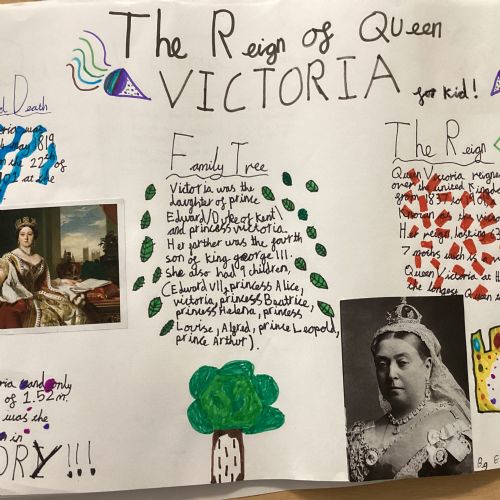 The Reign of Queen
VICTORIA for kid!
Death
was
May 1819
on the 22nd of
at the
Family Tree
Victoria was the
daughter of prince
Edward/Duke of Kent\
and princess victoria.
Her farther was the fourth
son of king george III.
she also had 9 children,
(Edward VII, princess Alice,
victoria, princess Beatrice,
princess Helena, princess
Louise, Algred, prince Leopold,
prince Arthur).
The Reign
Queen Victoria reigned
over the united Kingdom
from 1837 to
Known as the
Her reign, lasting 63
7 moths
Queen Victoria at
the longest Queen
and only
of 1.52m.
was the
in
ORY!!!
By E